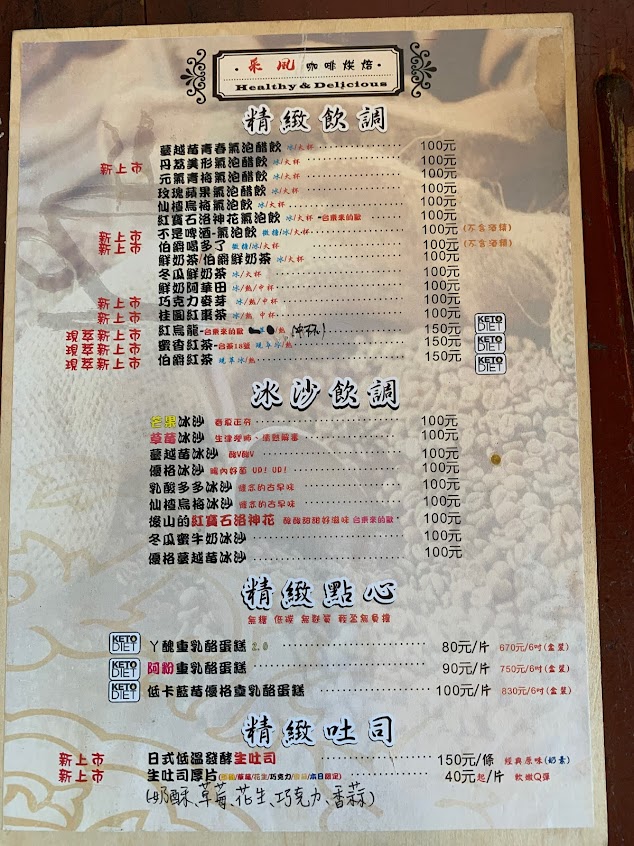 采風 咖啡烘焙
Healthy & Delicious
精緻飲調
蔓越莓青春氣泡醋飲 冰/大杯 100元
新上市 丹荔美形氣泡醋飲 冰/大杯 100元
元氣青梅氣泡醋飲 冰/大杯 100元
玫瑰蘋果氣泡醋飲 冰/大杯 100元
仙楂烏梅氣泡飲 冰/大杯 100元
紅寶石洛神花氣泡飲 冰/大杯 -台東來的歐 100元
新上市 不是啤酒-氣泡飲 微糖/冰/大杯 100元 (不含酒精)
新上市 伯爵喝多了 微糖/冰/大杯 100元 (不含酒精)
鮮奶茶/伯爵鮮奶茶 冰/大杯 100元
冬瓜鮮奶茶 冰/大杯 100元
鮮奶阿華田 冰/熱/中杯 100元
新上市 巧克力麥芽 冰/熱/中杯 100元
新上市 桂圓紅棗茶 冰/熱 中杯 100元
現萃新上市 紅烏龍-台東來的歐 /熱 150元 KETO DIET
現萃新上市 蜜香紅茶-台茶18號 現萃冰/熱 150元 KETO DIET
現萃新上市 伯爵紅茶 現萃冰/熱 150元 KETO DIET
冰沙飲調
芒果冰沙 春夏正夯 100元
草莓冰沙 100元
蔓越莓冰沙 酸V酸V 100元
優格冰沙 腸內好菌 UP! UP! 100元
乳酸多多冰沙 懷念的古早味 100元
仙楂烏梅冰沙 懷念的古早味 100元
燦山的紅寶石洛神花 酸酸甜甜好滋味 台東來的歐 100元
冬瓜蜜牛奶冰沙 100元
優格蔓越莓冰沙 100元
精緻點心
無糖 低碳 無麩質 輕盈無負擔
KETO DIET ㄚ醜重乳酪蛋糕 2.0 80元/片 670元/6吋(盒裝)
KETO DIET 阿粉重乳酪蛋糕 90元/片 750元/6吋(盒裝)
KETO DIET 低卡藍莓優格重乳酪蛋糕 100元/片 830元/6吋(盒裝)
精緻吐司
新上市 日式低溫發酵生吐司 150元/條 經典原味(奶素)
新上市 生吐司厚片(奶酥/草莓/花生/巧克力/香蒜/本日限定) 40元起/片 軟嫩Q彈
(奶酥、草莓、花生、巧克力、香蒜)